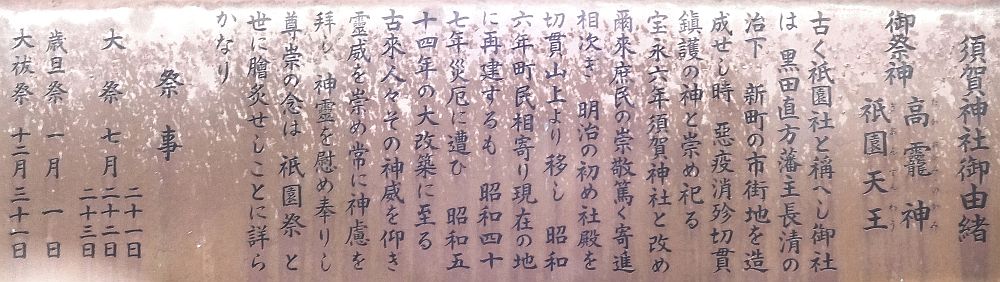 須賀神社御由緒
御祭神 高龗神
祇園天王
古く祇園社と稱へし御社
は 黒田直方藩王長清の
治下 新町の市街地を造
成せし時 惡疫消殄切貫
鎭護の神と崇め祀る
宝永六年須賀神社と改め
爾來庶民の崇敬篤く寄進
相次ぎ 明治の初め社殿を
切貫山上より移し 昭和
六年町民相寄り現在の地
に再建するも 昭和四十
七年災厄に遭ひ 昭和五
十四年の大改築に至る
古來人々その神威を仰き
靈威を崇め常に神慮を
拜し 神靈を慰め奉りし
尊崇の念は 祇園祭 と
世に膾炙せしことに詳ら
かなり
祭事
大祭 七月 二十一日
二十二日
二十三日
歳旦祭 一月 一日
大祓祭 十二月三十一日